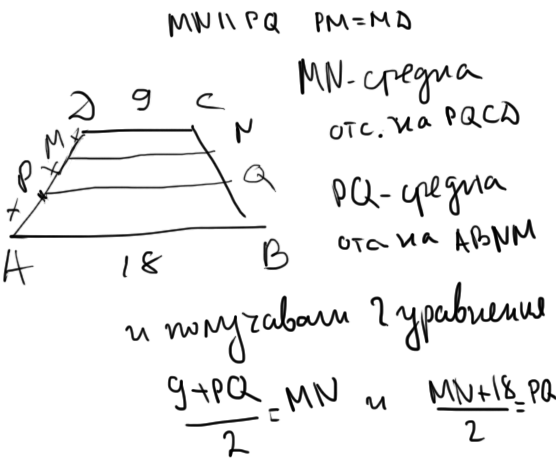 MN || PQ PM = MD
D 9 C
M N
P Q
A 18 B
MN - средна
отс. на PQCD
PQ - средна
отс на ABNM
и получавам 2 уравнения
(9+PQ)/2 = MN и (MN+18)/2 = PQ